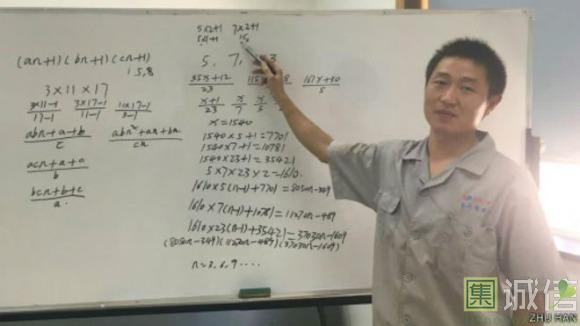 (an+1)(bn+1)(cn+1)
1 5,8
3×11×17
3×11-1/17-1 3×17-1/11-1 11×17-1/3-1
abn+a+b/c abn²+an+bn/cn
acn+a+c/b
bcn+b+c/a
5×2+1 7×2+1
5, 7,
35x+12/23 161x+30/5
x+1/23 x/7 x/5
x=1540
1540×5+1=7701
1540×7+1=10781
1540×23+1=35421
5×7×23×2=1610
1610×5(n-1)+7701=8050n-349
1610×7(n-1)+10781=11270n-489
1610×23(n-1)+35421=37030n-1609
(8050n-349)(11270n-489)(37030n-1609)
n=3.6.9.....
集 诚信
ZHU HAN